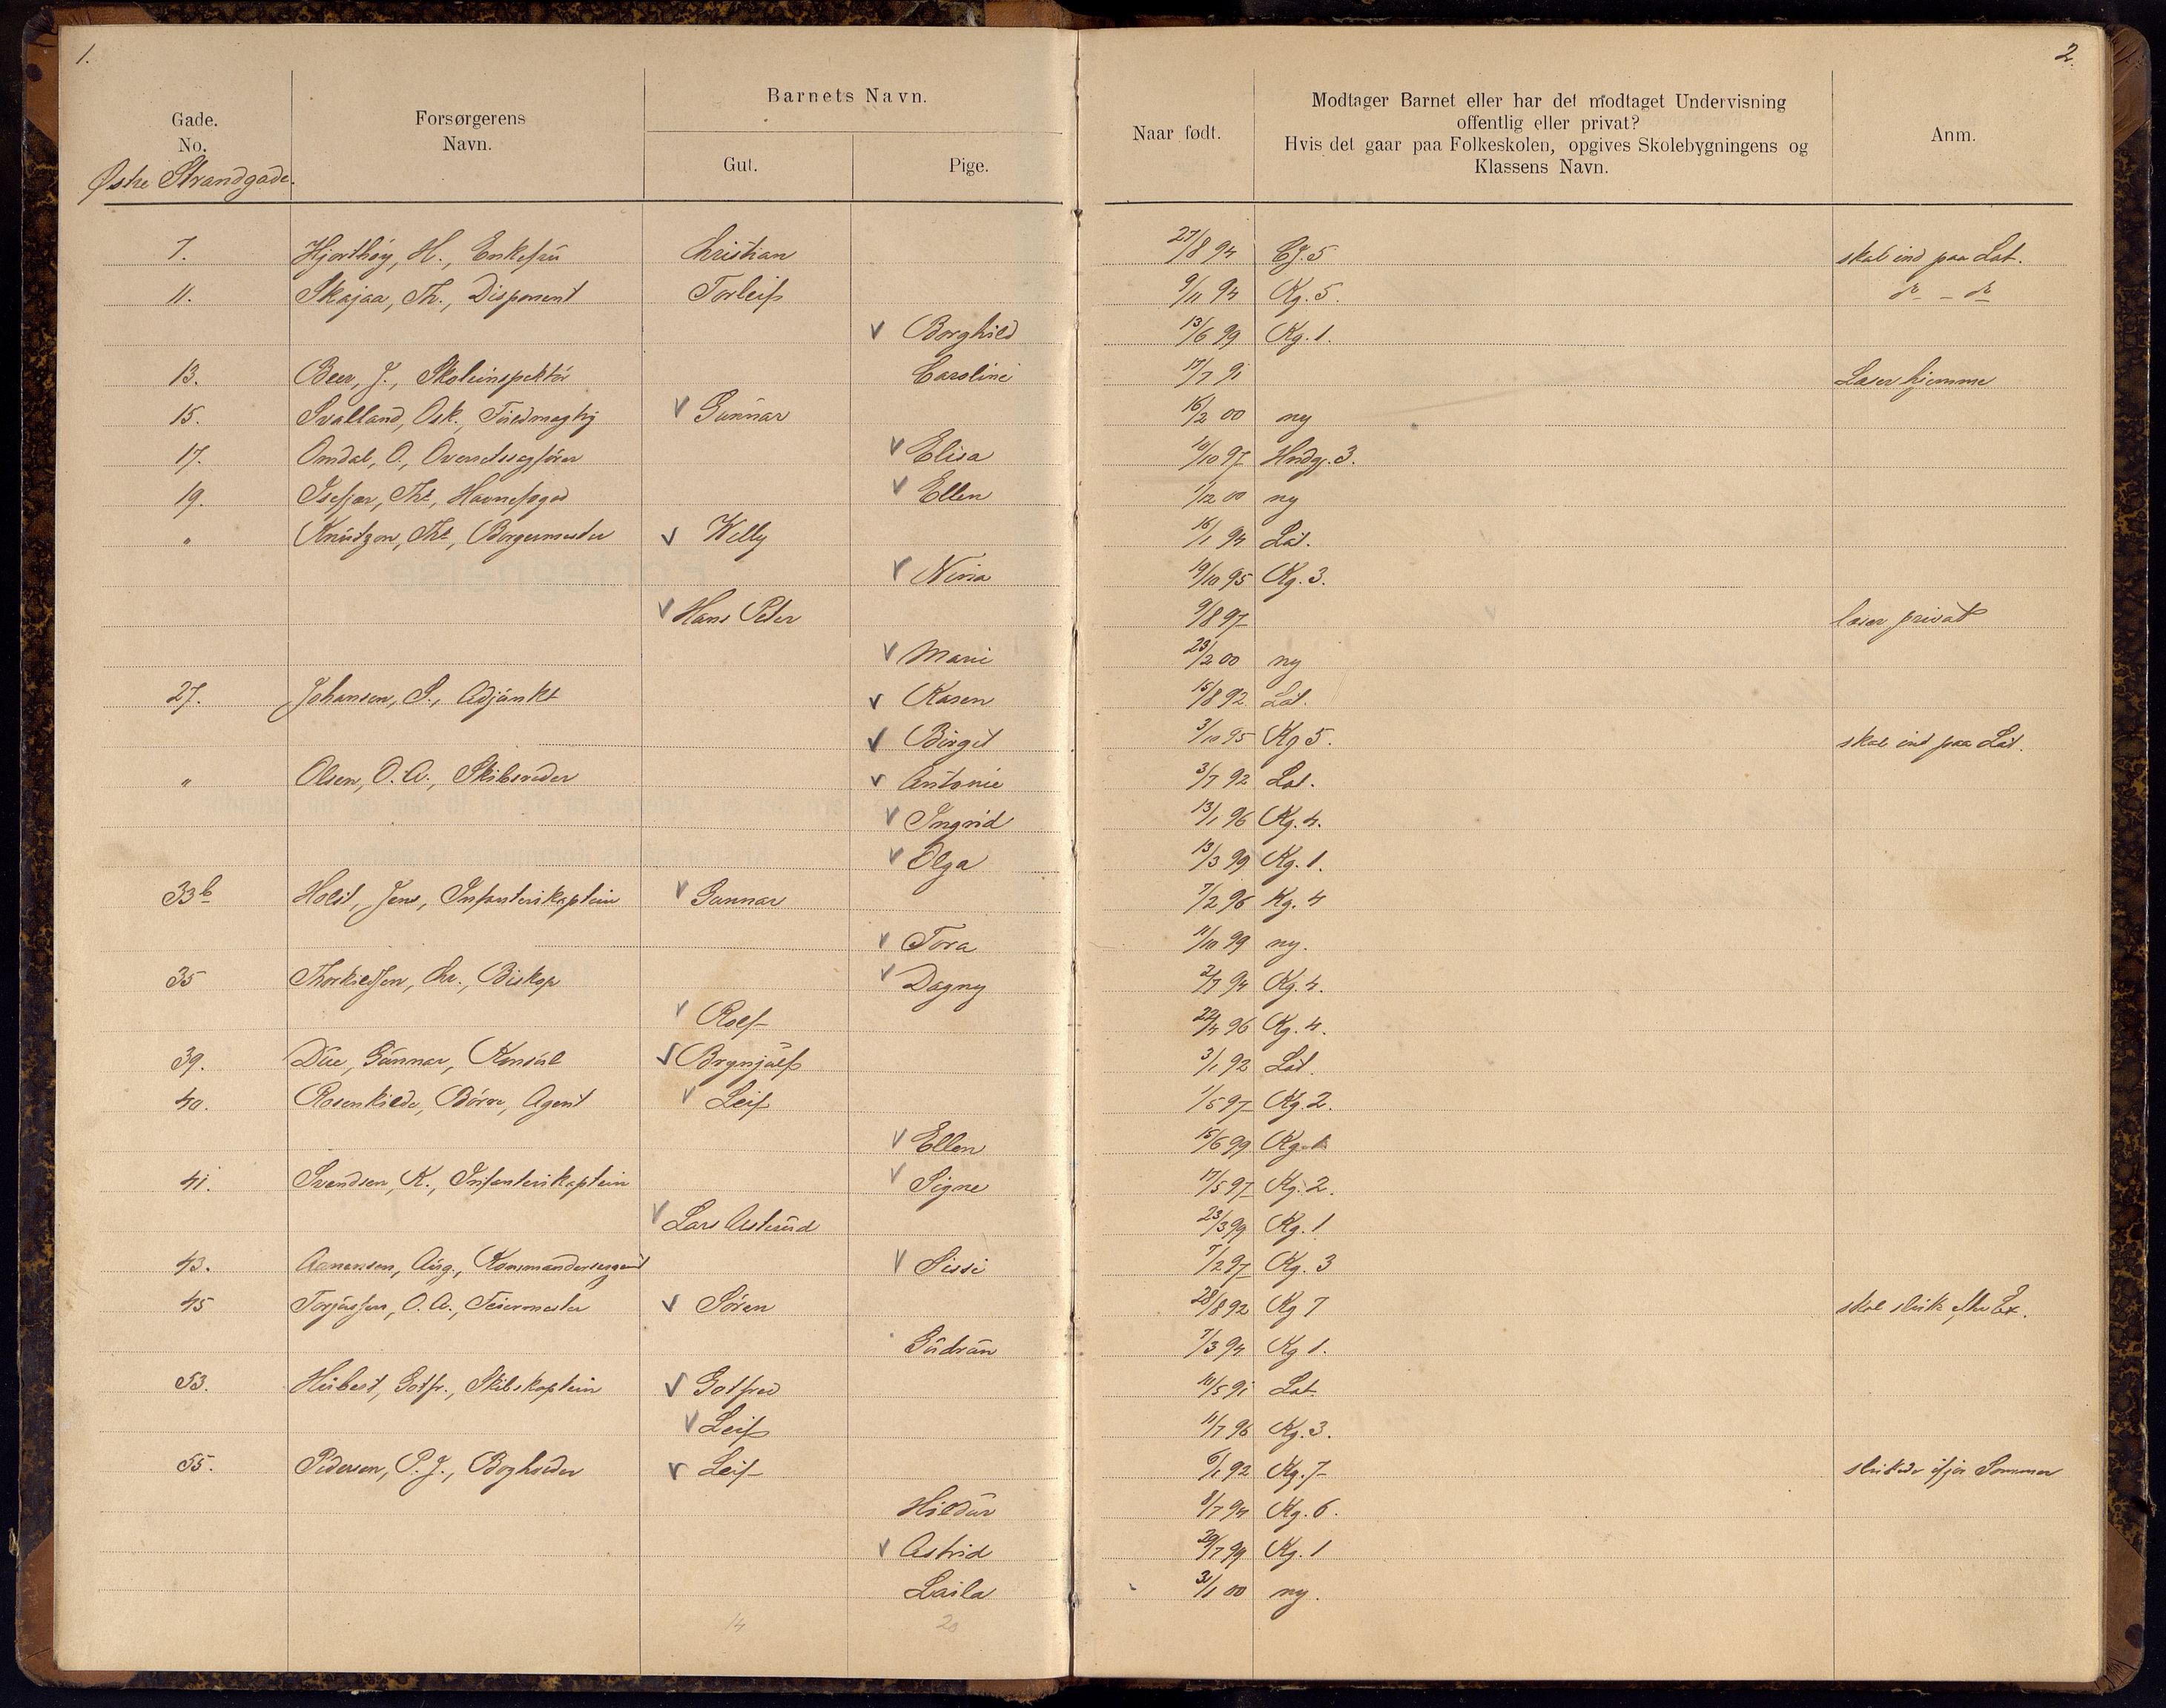 1.
2.
Gade.
No.
Forsørgerens
Navn.
Barnets Navn.
Gut.
Pige.
Naar født.
Modtager Barnet eller har det modtaget Undervisning
offentlig eller privat?
Hvis det gaar paa Folkeskolen, opgives Skolebygningens og
Klassens Navn.
Anm.
Østre Strandgade.
7. Hjorthøy, H., Enkefru Christian 27/8 94 Bg. 5 skal ind paa Lat.
11. Skajaa, Th., Disponent Torleif 9/11 94 Kg. 5. do - do
V Borghild 13/6 99 Kg. 1.
13. Beer, J., Skoleinspektør Caroline 17/7 91 Læser hjemme
15. Svalland, Osk., Fuldmægtig V Gunnar 16/2 00 ny
17. Omdal, O., Overretssagfører V Elisa 10/10 97 Hndg. 3.
19. Isefjær, Ths, Havnefoged V Ellen 1/12 00 ny
" Knutzon, Ths, Borgermester V Willy 16/1 94 Lat.
V Nina 19/10 95 Kg. 3.
V Hans Peter 9/8 97 læser privat
V Marie 23/2 00 ny
27. Johansen, S., Adjunkt V Karen 15/8 92 Lat.
V Birgit 3/10 95 Kg 5. skal ind paa Lat.
" Olsen, O. A., Skibsreder V Antonie 3/7 92 Lat.
V Ingrid 13/1 96 Kg. 4.
V Olga 13/3 99 Kg. 1.
33 b Holst, Jens, Infanterikaptein V Gunnar 7/2 96 Kg. 4
V Tora 11/10 99 ny.
35 Thorkildsen, Chr., Biskop V Dagny 2/7 94 Kg. 4.
V Rolf 22/4 96 Kg. 4.
39. Due, Gunnar, Konsul V Brynjulf 3/1 92 Lat.
40. Rosenkilde, Børre, Agent V Leif 1/5 97 Kg. 2.
V Ellen 15/6 99 Kg. 1
41. Svendsen, K., Infanterikaptein V Signe 17/5 97 Kg. 2.
V Lars Asterud 23/3 99 Kg. 1
43. Aanensen, Aug., Kommandersergent V Sissi 7/2 97 Kg. 3
45 Torjussen, O. A., Feiermester V Søren 28/8 92 Kg 7 skal slutte efter Ex.
Gudrun 7/3 94 Kg 1.
53. Heibert, Gotfr., Skibskaptein V Gotfred 11/5 91 Lat.
V Leif 11/7 96 Kg. 3.
55. Pedersen, P. J., Bogholder V Leif 6/1 92 Kg. 7 sluttede ifjor Sommer
Hildur 8/7 94 Kg. 6.
V Astrid 29/7 99 Kg. 1
Laila 31/1 00 ny.
14 20